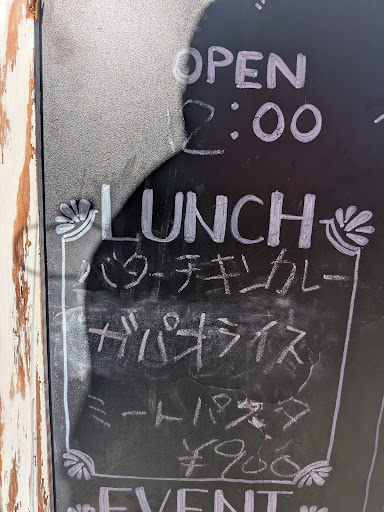 OPEN
12:00~
LUNCH
バターチキンカレー
ガパオライス
ミートパスタ
¥900
EVENT